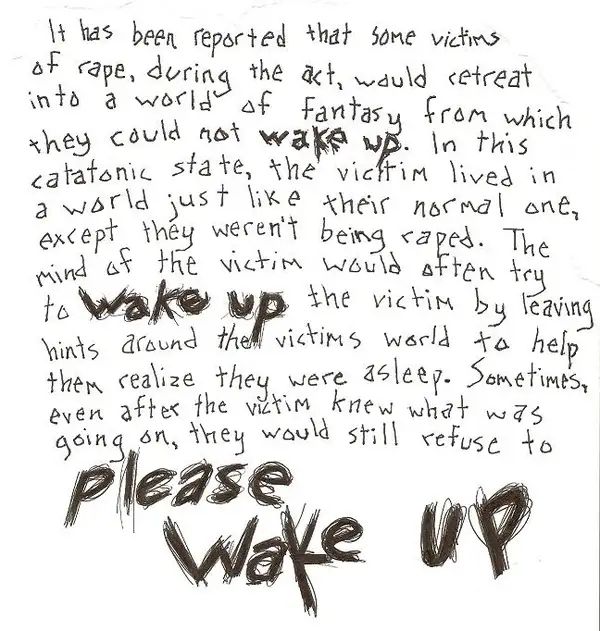 It has been reported that some victims
of rape, during the act, would retreat
into a world of fantasy from which
they could not wake up. In this
catatonic state, the victim lived in
a world just like their normal one,
except they weren't being raped. The
mind of the victim would often try
to wake up the victim by leaving
hints around the victims world to help
them realize they were asleep. Sometimes,
even after the victim knew what was
going on, they would still refuse to
please
wake up